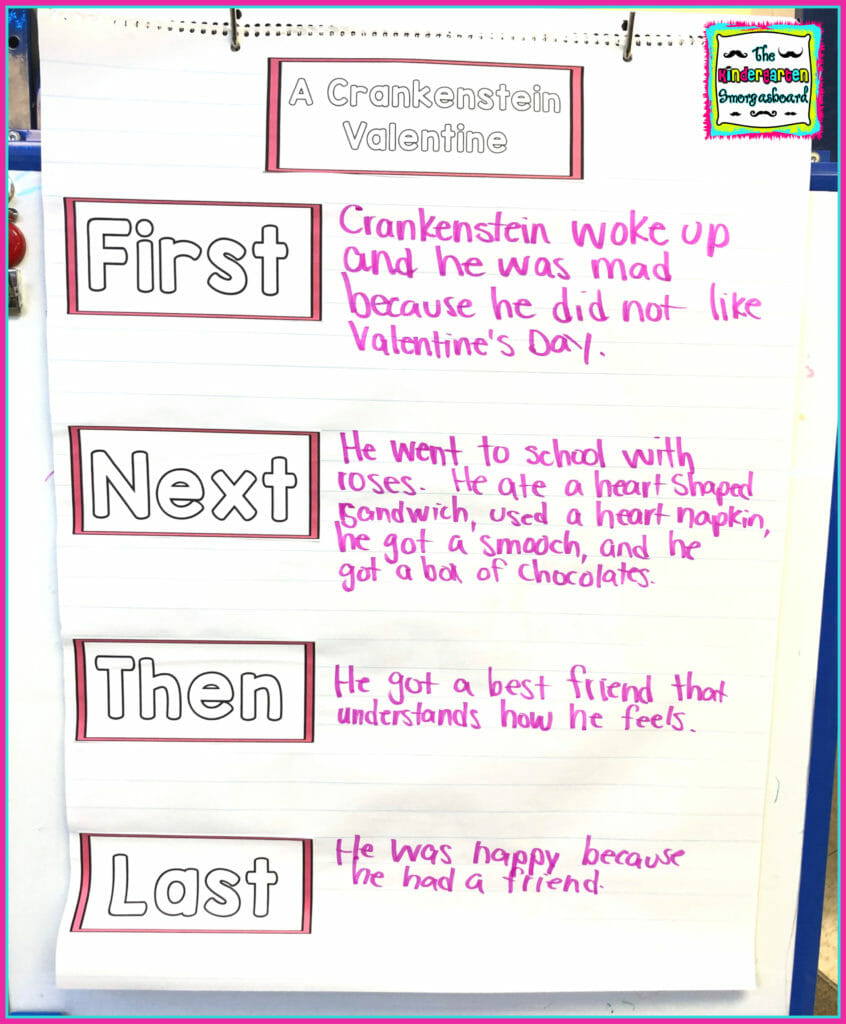 The
Kindergarten
Smorgasboard
A Crankenstein
Valentine
First
Crankenstein woke up
and he was mad
because he did not like
Valentine's Day.
Next
He went to school with
roses. He ate a heart shaped
sandwich, used a heart napkin,
he got a smooch, and he
got a box of chocolates.
Then
He got a best friend that
understands how he feels.
Last
He was happy because
he had a friend.